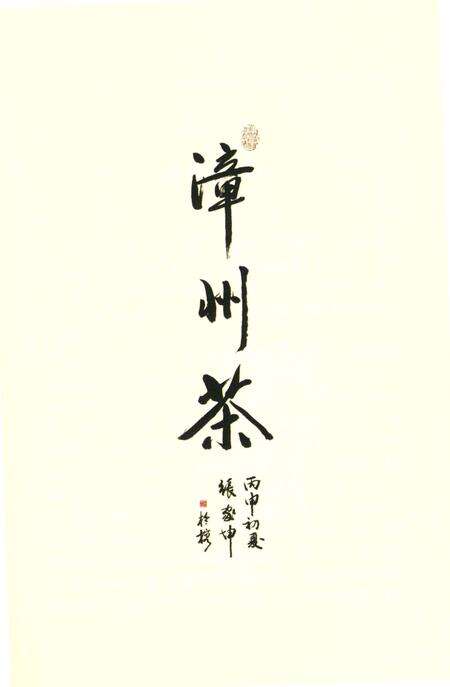 漳州茶
丙申初夏
張 坤
於榕